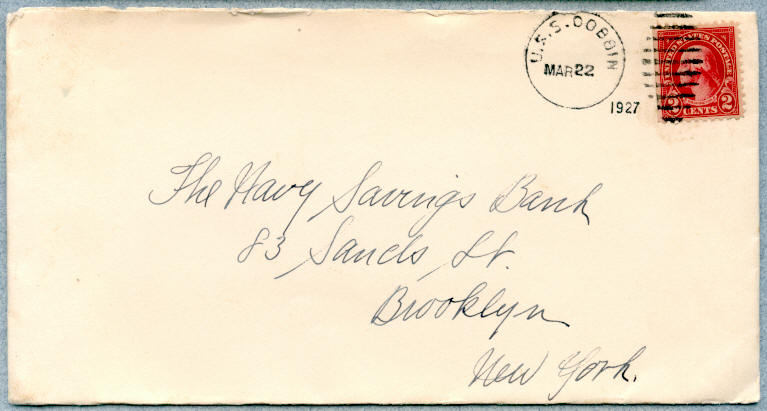 U.S.S. DOBBIN
MAR 22
1927
UNITED STATES POSTAGE
2 CENTS 2
The Navy Savings Bank
83 Sands St.
Brooklyn
New York.